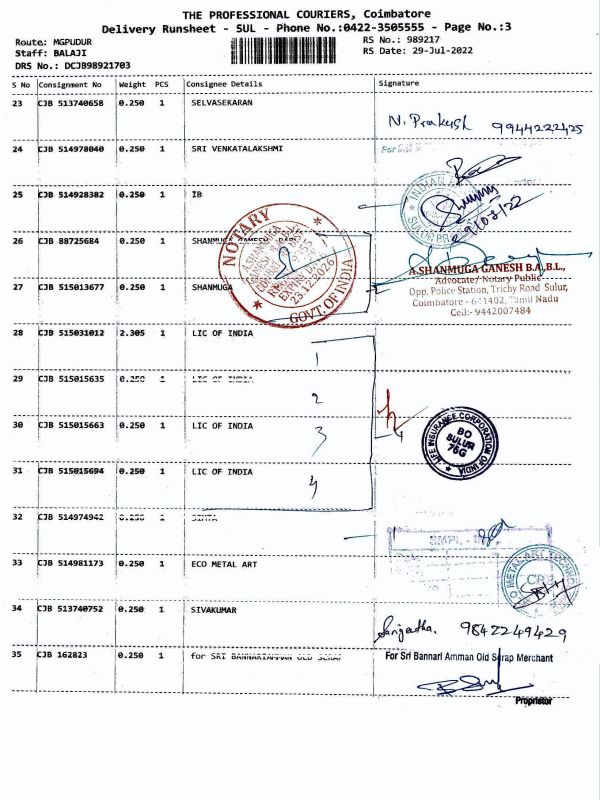 THE PROFESSIONAL COURIERS, Coimbatore
Delivery Runsheet - SUL - Phone No.:0422-3505555 - Page No.:3
Route: MGPUDUR
RS No.: 989217
Staff: BALAJI
RS Date: 29-Jul-2022
DRS No.: DCJB98921703
S No Consignment No Weight PCS Consignee Details Signature
23 CJB 513740658 0.250 1 SELVASEKARAN
N. Prakash 9944222425
24 CJB 514978040 0.250 1 SRI VENKATALAKSHMI
25 CJB 514928382 0.250 1 IB
INDIAN
SULUR
29/03/22
26 CJB 88725684 0.250 1 SHANMUGA GANESH
NOTARY
A.SHANMUGA
GANESH B.A.B.L.
23.12.2026
GOVT. OF INDIA
27 CJB 515013677 0.250 1 SHANMUGA
2
A.SHANMUGA GANESH B.A.,B.L.,
Advocate/ Notary Public
Opp. Police Station, Trichy Road Sulur,
Coimbatore - 641402, Tamil Nadu
Cell:- 9442007484
28 CJB 515031012 2.305 1 LIC OF INDIA
1
29 CJB 515015635 0.250 1 LIC OF INDIA
2
30 CJB 515015663 0.250 1 LIC OF INDIA
3
4
LIFE INSURANCE CORPORATION OF INDIA
BO
SULUR
76G
31 CJB 515015694 0.250 1 LIC OF INDIA
4
32 CJB 514974942 0.250 1
SMPL
33 CJB 514981173 0.250 1 ECO METAL ART
METAL ART
CBE
34 CJB 513740752 0.250 1 SIVAKUMAR
Sangeetha. 9842249429
35 CJB 162823 0.250 1 for SRI BANNARIAMMAN OLD SCRAP
For Sri Bannari Amman Old Scrap Merchant
Proprietor